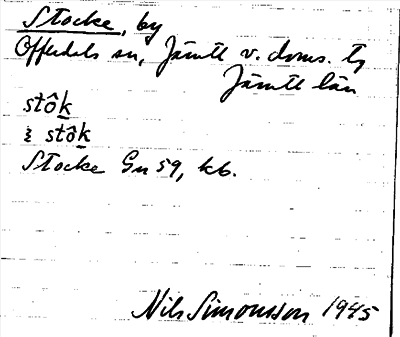 Stocke, by
Offerdals sn, Jämtl v. doms. tg
Jämtl län
stôk
stôk
Stocke Gn 59, kb.
Nils Simonsson 1945